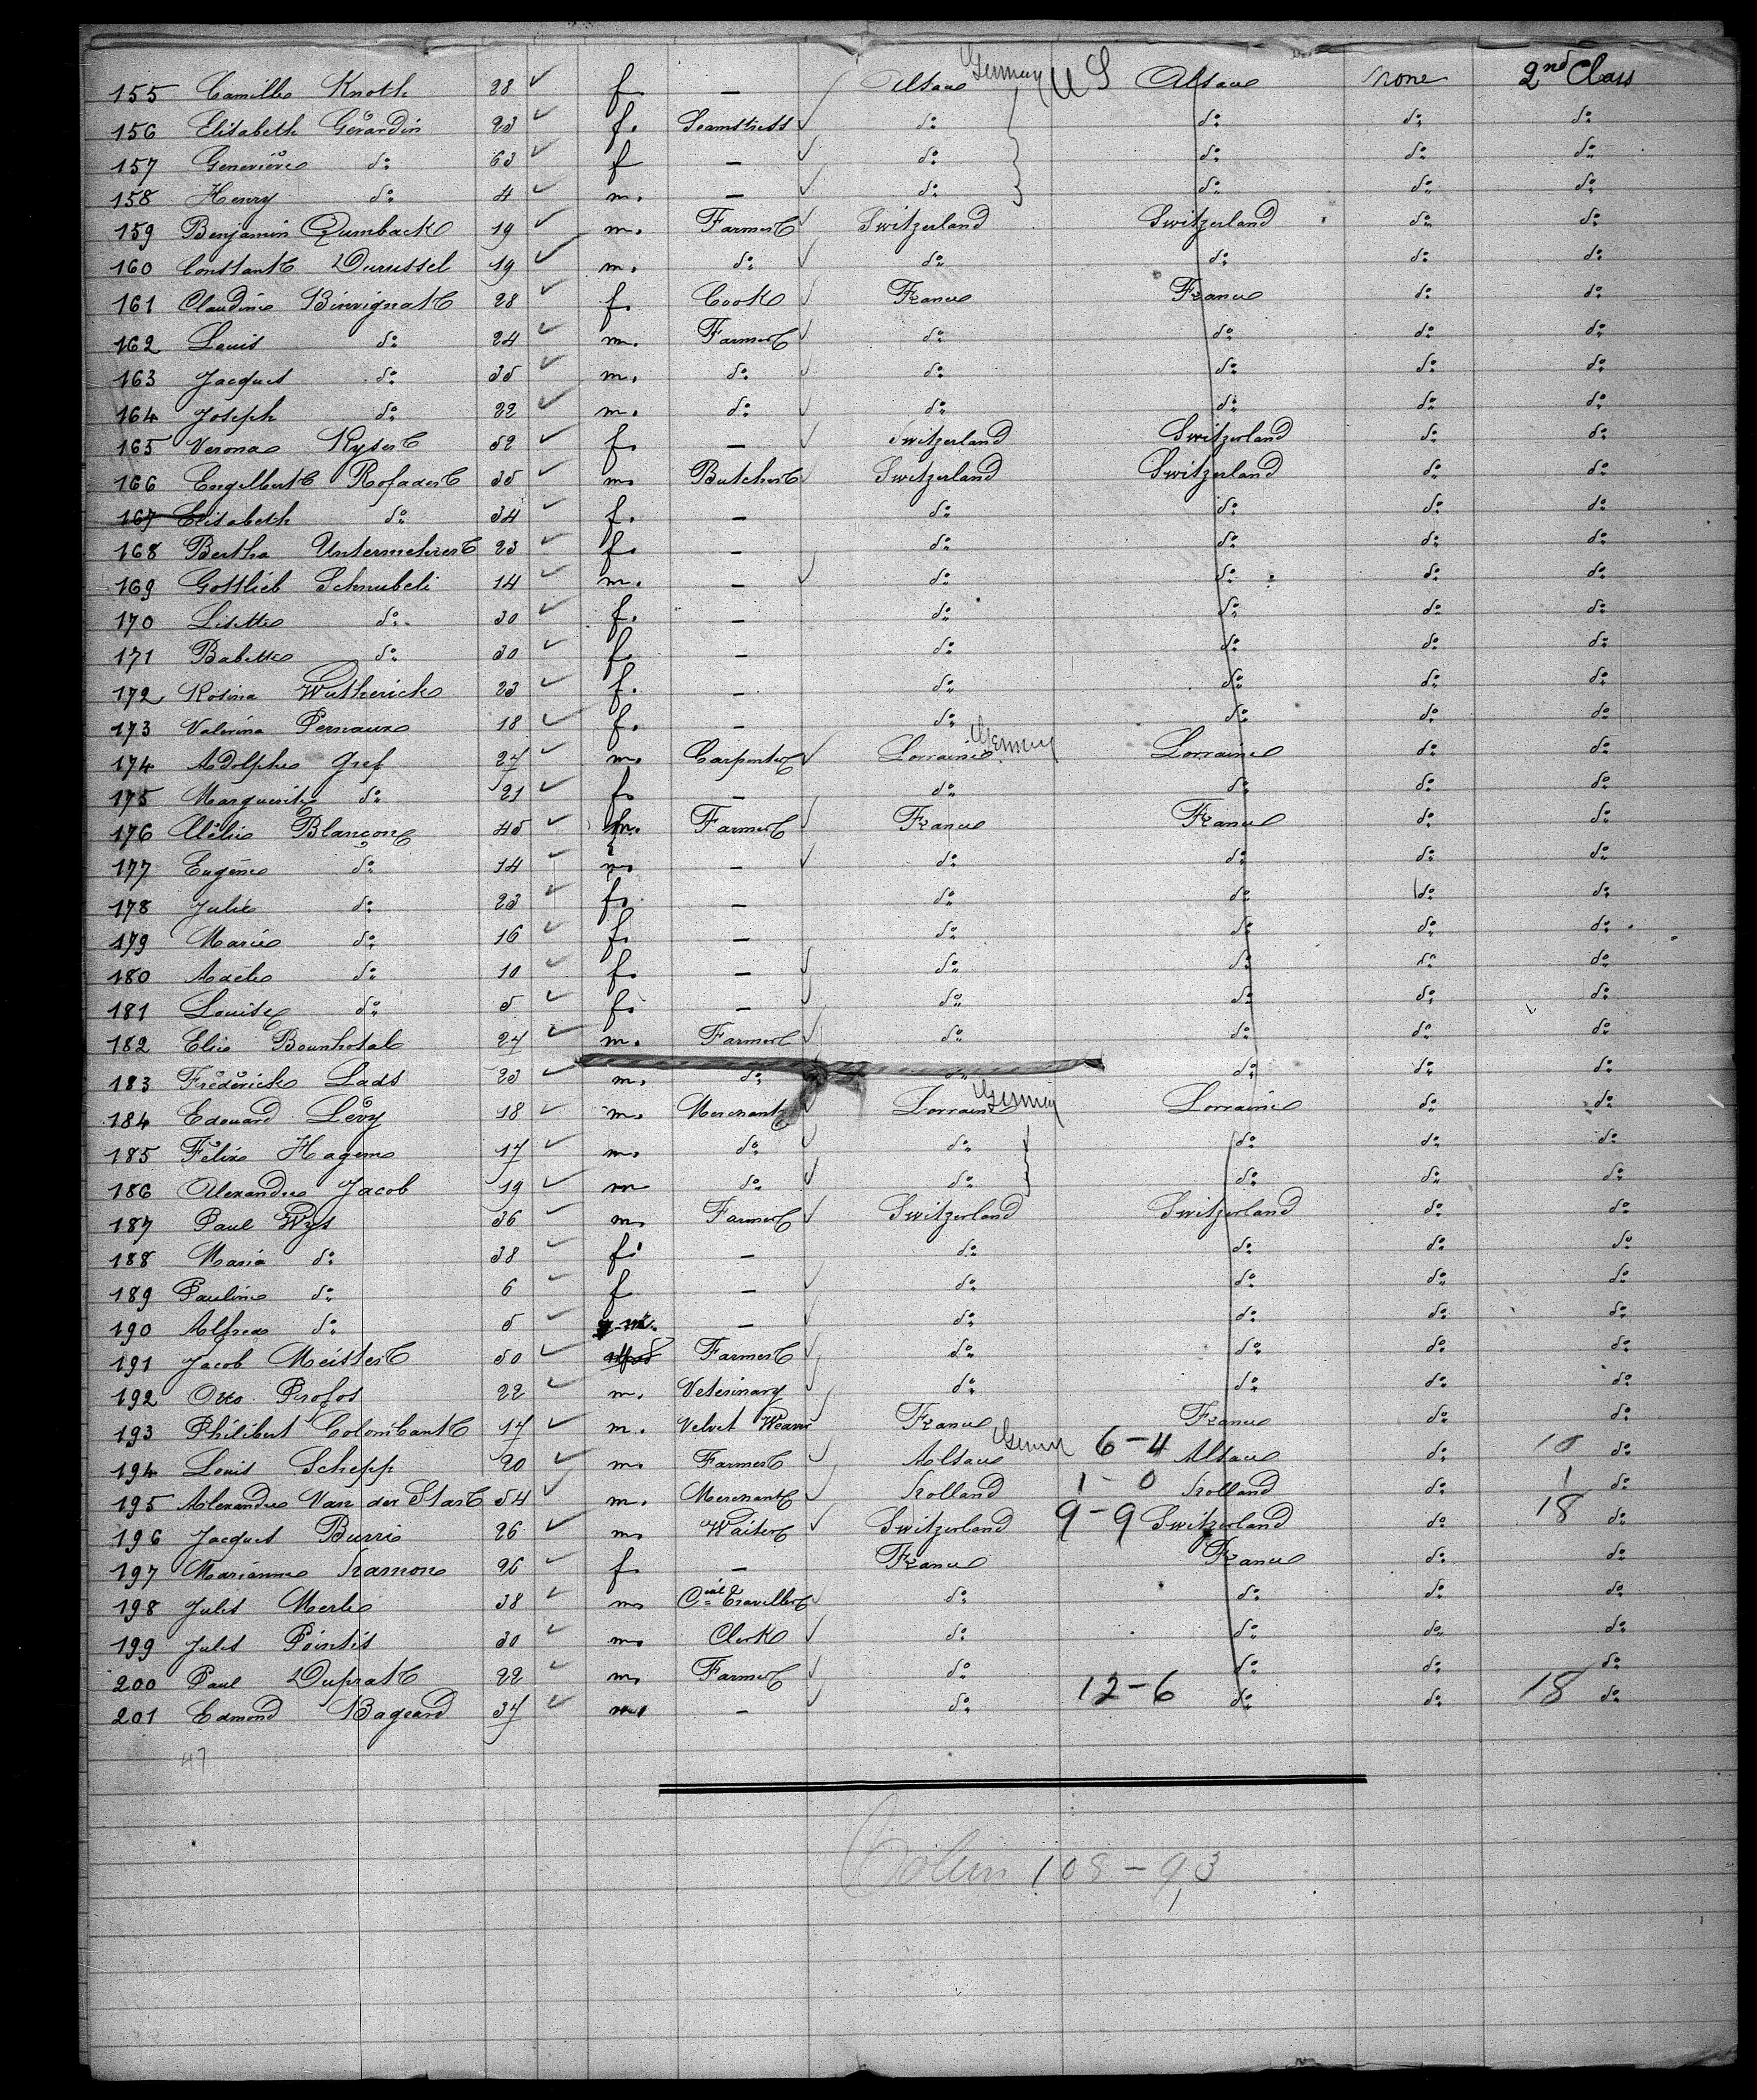 155 Camille Knoth 28 ✓ f. — Alsace Germany US Alsace none 2nd Class
156 Elisabeth Gérardin 23 ✓ f. Seamstress ✓ do do do do
157 Geneviève do 63 ✓ f — ✓ do do do do
158 Henry do 4 ✓ m. — ✓ do do do do
159 Benjamin Qumback 19 ✓ m. Farmer ✓ Switzerland Switzerland do do
160 Constant Durussel 19 ✓ m. do ✓ do do do do
161 Claudine Binvignat 28 ✓ f. Cook ✓ France France do do
162 Louis do 24 ✓ m. Farmer ✓ do do do do
163 Jacques do 35 ✓ m. do ✓ do do do do
164 Joseph do 22 ✓ m. do ✓ do do do do
165 Verona Kyser 52 ✓ f. — Switzerland Switzerland do do
166 Engelbert Rofader 35 ✓ m. Butcher ✓ Switzerland Switzerland do do
167 Elisabeth do 34 ✓ f. — do do do do
168 Bertha 23 ✓ f. — do do do do
169 Gottlieb Schnubeli 14 ✓ m. — ✓ do do do do
170 Lisette do 30 ✓ f. — do do do do
171 Babette do 30 ✓ f. — do do do do
172 Rosina Wutherich 23 ✓ f. — do do do do
173 Valerina Pernaux 18 ✓ f. — do do do do
174 Adolphe Gref 27 ✓ m. Carpenter ✓ Lorraine Germany Lorraine do do
175 Marguerite do 21 ✓ f. — do do do do
176 Blançon 45 ✓ Farmer ✓ France France do do
177 Eugène do 14 ✓ m. — ✓ do do do do
178 Julie do 23 ✓ f. — do do do do
179 Marie do 16 ✓ f. — do do do do
180 Adèle do 10 ✓ f. — ✓ do do do do
181 Louise do 5 ✓ f. — ✓ do do do do
182 Elie Bounhotal 24 ✓ m. Farmer ✓ do do do do
183 Frédérick Lads 23 ✓ m. do do do do do
184 Edouard Lévy 18 ✓ m. Merchant ✓ Lorraine Germany Lorraine do do
185 Félix Hagem 17 ✓ m. do ✓ do do do do
186 Alexandre Jacob 19 ✓ m do ✓ do do do do
187 Paul Wys 36 ✓ m. Farmer ✓ Switzerland Switzerland do do
188 Maria do 38 ✓ f. — do do do do
189 Pauline do 6 ✓ f — ✓ do do do do
190 Alfred do 5 ✓ m. — ✓ do do do do
191 Jacob Meister 50 ✓ Farmer ✓ do do do do
192 Otto Profos 22 ✓ m. Veterinary ✓ do do do do
193 Philibert Colombant 17 ✓ m. Velvet Weaver France France do do
194 Louis Schepp 20 ✓ m. Farmer ✓ Alsace Germany 6-4 Alsace do 10 do
195 Alexandre Van der Star 54 ✓ m. Merchant ✓ Holland 1-0 Holland do 1 do
196 Jacques Burri 26 ✓ m. Waiter ✓ Switzerland 9-9 Switzerland do 18 do
197 Marianne Hamon 26 ✓ f — France France do do
198 Jules Merle 38 ✓ m. Cial Traveller ✓ do do do do
199 Jules Pointis 30 ✓ m. Clerk ✓ do do do do
200 Paul Duprat 22 ✓ m. Farmer ✓ do do do do
201 Edmond Bageard 37 ✓ m. — ✓ do 12-6 do do 18 do
47
108-93